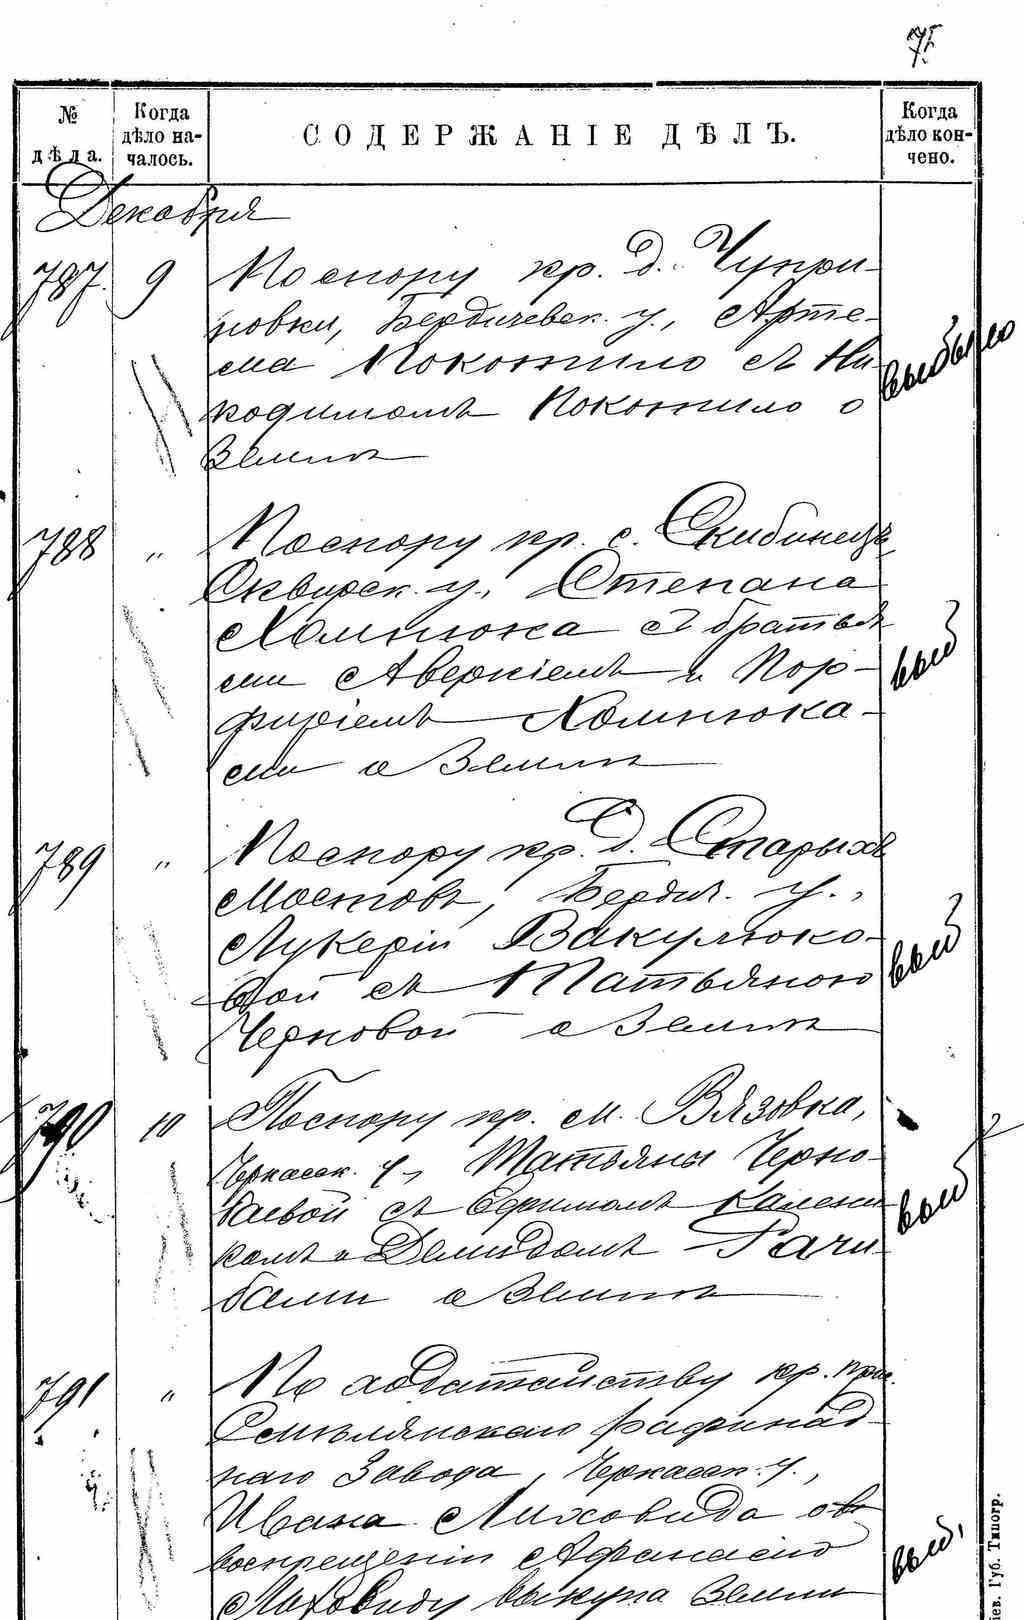 75
№ дѣла.
Когда дѣло началось.
СОДЕРЖАНІЕ ДѢЛЪ.
Когда дѣло кончено.
Декабря
787. 9 По спору кр. д. Чупри-
новки, Бердичевск. у., Арте-
ма Покотило съ Ни-
кодимомъ Покотило о
землѣ
выбыло
788 " По спору кр. с. Скибинецъ,
Сквирск. у., Степана
Хомнюка съ братья-
ми Аверкіемъ и Пор-
фиріемъ Хомнюка-
ми о землѣ
выб
789 " По спору кр. д. Старыхъ
Мостовъ, Бердич. у.,
Лукеріи Вакулюко-
вой съ Татьяною
Черновой о землѣ
выб
790 10 По спору кр. м. Вязовка,
Черкасск. у., Татьяны Черно-
баевой съ Ефимомъ Калени-
комъ и Демидомъ Рачи-
бами о землѣ
выб
791 " По ходатайству кр. при
Смѣлянскаго рафинад-
наго завода, Черкасск. у.,
Ивана Лиховида объ
воспрещеніи Афанасію
Лиховиду выкупа земли
выб.
іев. Губ. Типогр.